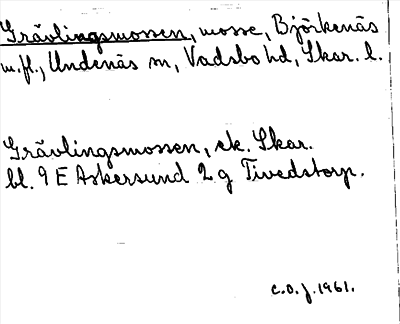 Grävlingsmossen, mosse, Björkenäs
m.fl., Undenäs sn, Vadsbo hd, Skar. l.
Grävlingsmossen, ek. Skar.
bl. 9 E Askersund 2 g Tivedstorp.
C.O.J. 1961.